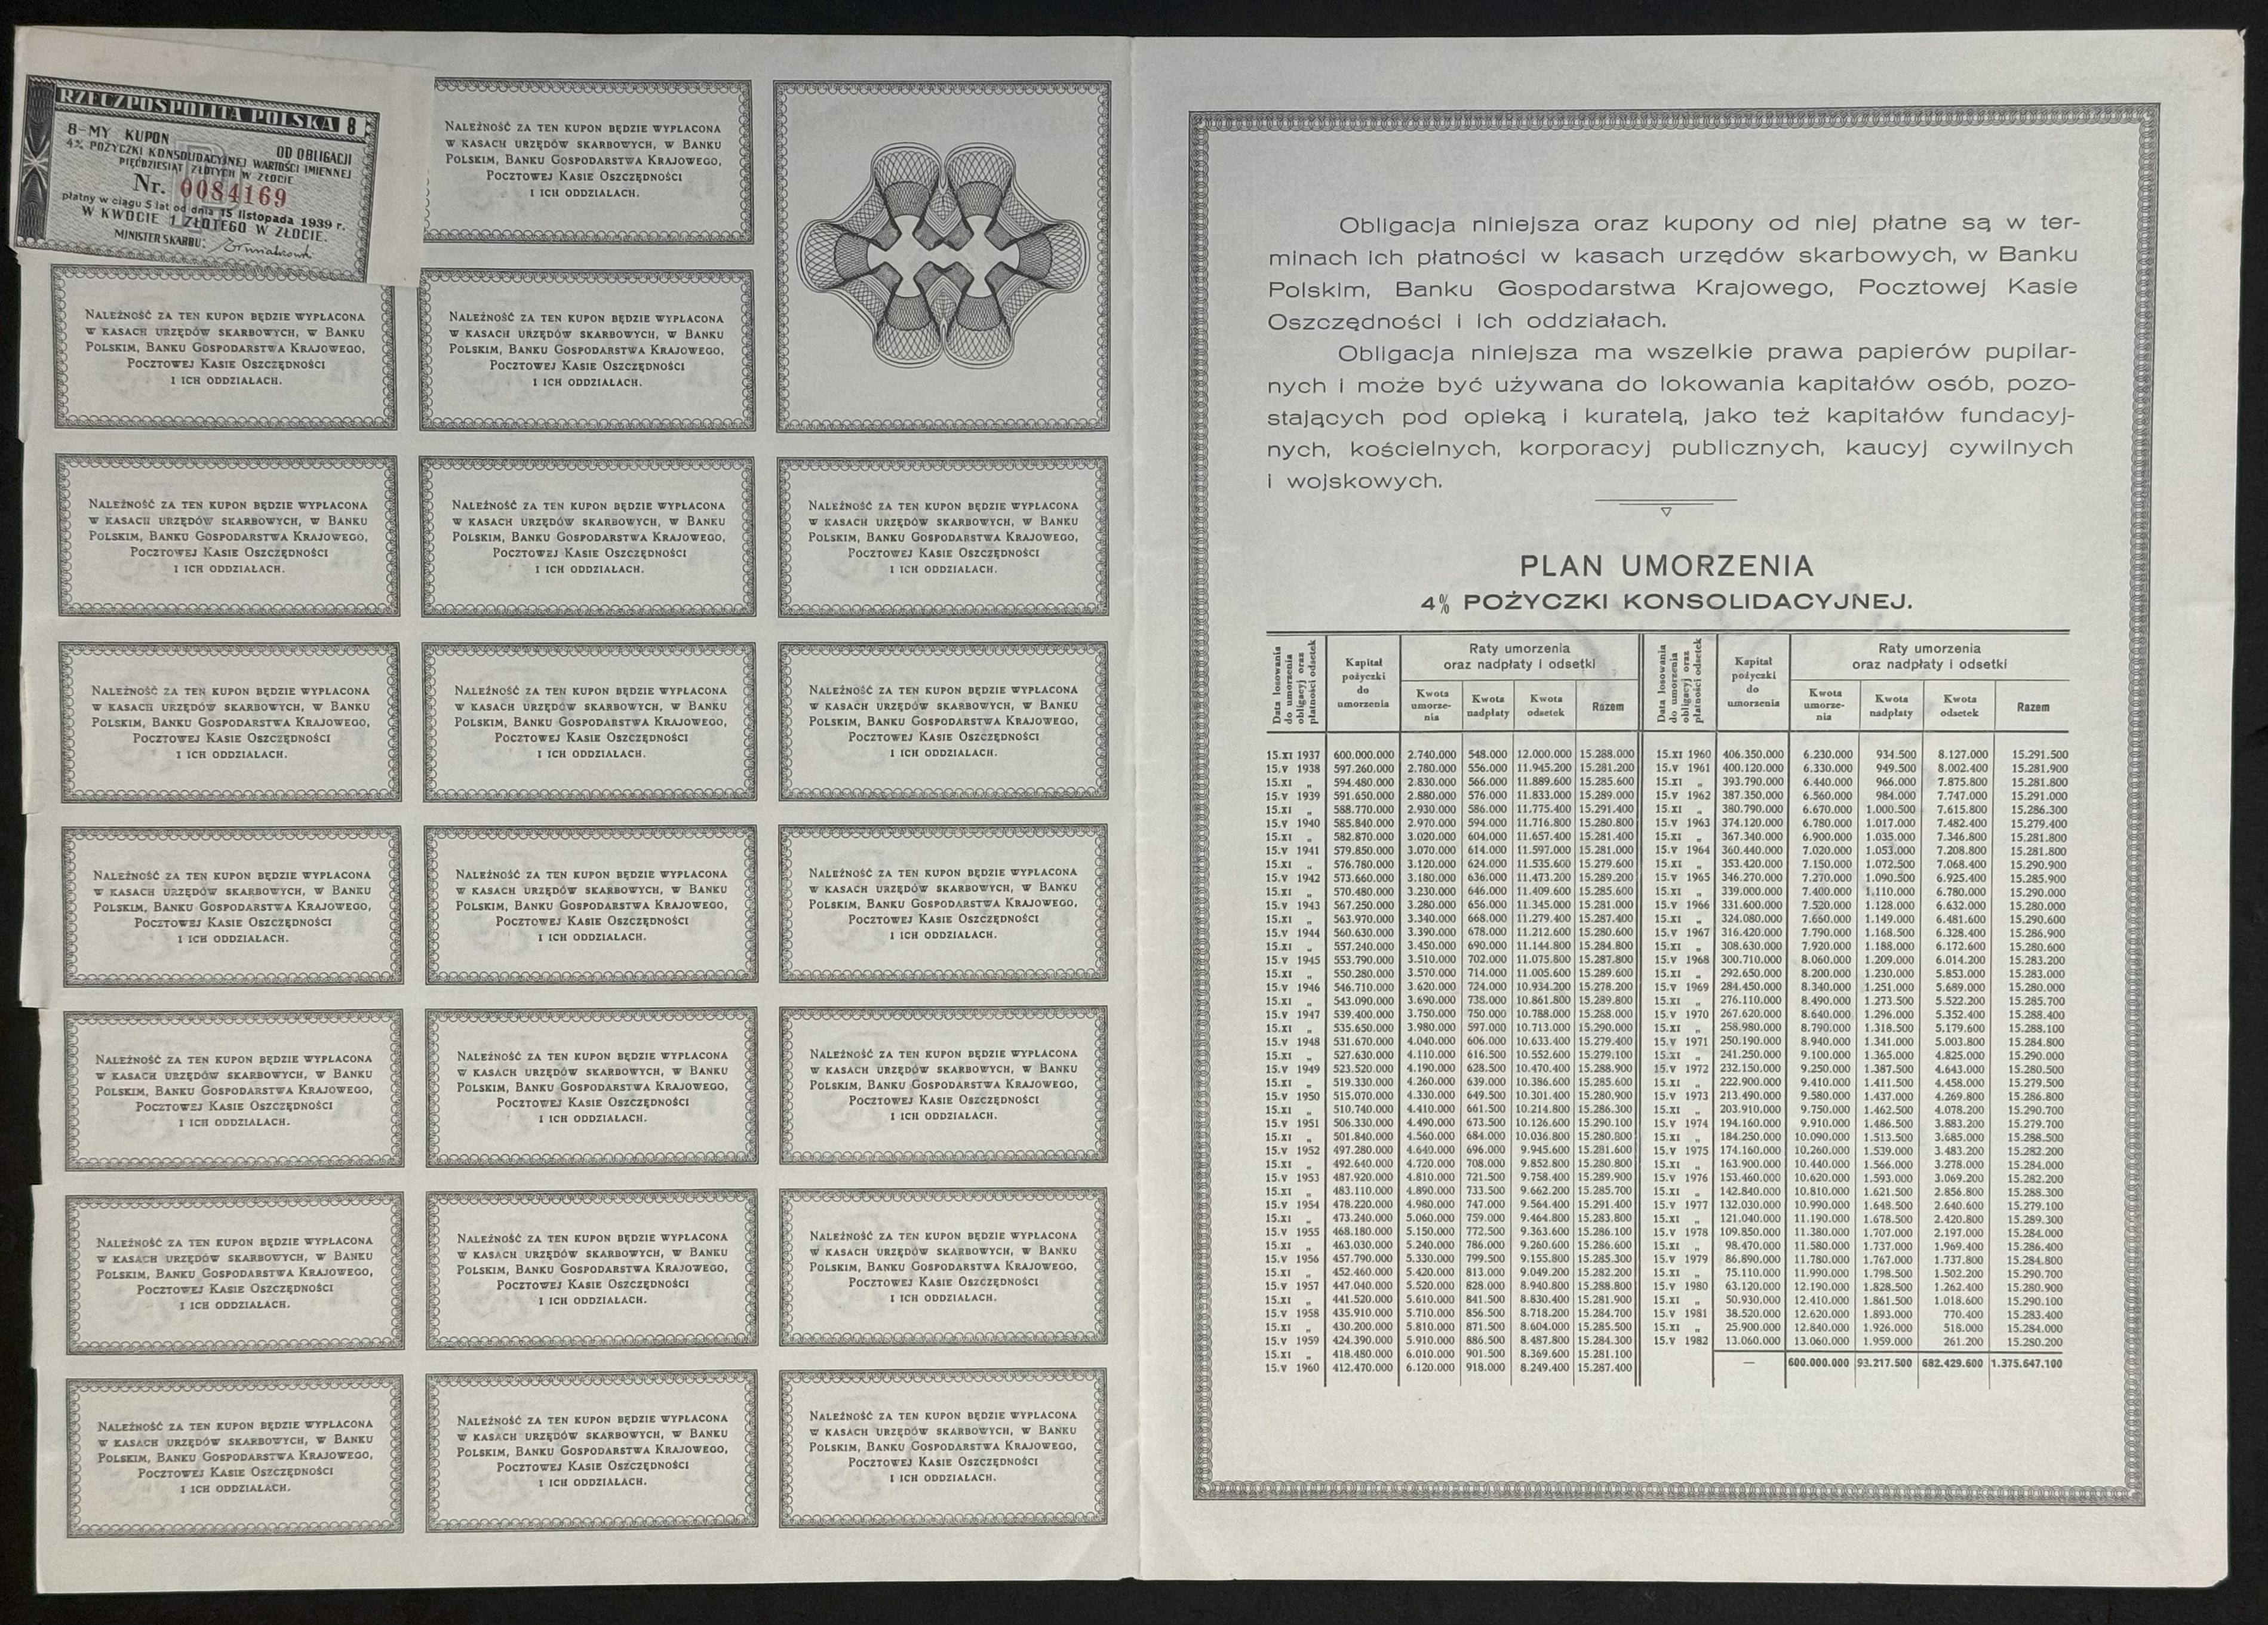 RZECZPOSPOLITA POLSKA 8
8-MY KUPON OD OBLIGACJI
4% POŻYCZKI KONSOLIDACYJNEJ WARTOŚCI IMIENNEJ
PIĘĆDZIESIĄT ZŁOTYCH W ZŁOCIE
Nr. 0084169
płatny w ciągu 5 lat od dnia 15 listopada 1939 r.
W KWOCIE 1 ZŁOTEGO W ZŁOCIE.
MINISTER SKARBU:
NALEŻNOŚĆ ZA TEN KUPON BĘDZIE WYPŁACONA
W KASACH URZĘDÓW SKARBOWYCH, W BANKU
POLSKIM, BANKU GOSPODARSTWA KRAJOWEGO,
POCZTOWEJ KASIE OSZCZĘDNOŚCI
I ICH ODDZIAŁACH.
NALEŻNOŚĆ ZA TEN KUPON BĘDZIE WYPŁACONA
W KASACH URZĘDÓW SKARBOWYCH, W BANKU
POLSKIM, BANKU GOSPODARSTWA KRAJOWEGO,
POCZTOWEJ KASIE OSZCZĘDNOŚCI
I ICH ODDZIAŁACH.
NALEŻNOŚĆ ZA TEN KUPON BĘDZIE WYPŁACONA
W KASACH URZĘDÓW SKARBOWYCH, W BANKU
POLSKIM, BANKU GOSPODARSTWA KRAJOWEGO,
POCZTOWEJ KASIE OSZCZĘDNOŚCI
I ICH ODDZIAŁACH.
NALEŻNOŚĆ ZA TEN KUPON BĘDZIE WYPŁACONA
W KASACH URZĘDÓW SKARBOWYCH, W BANKU
POLSKIM, BANKU GOSPODARSTWA KRAJOWEGO,
POCZTOWEJ KASIE OSZCZĘDNOŚCI
I ICH ODDZIAŁACH.
NALEŻNOŚĆ ZA TEN KUPON BĘDZIE WYPŁACONA
W KASACH URZĘDÓW SKARBOWYCH, W BANKU
POLSKIM, BANKU GOSPODARSTWA KRAJOWEGO,
POCZTOWEJ KASIE OSZCZĘDNOŚCI
I ICH ODDZIAŁACH.
NALEŻNOŚĆ ZA TEN KUPON BĘDZIE WYPŁACONA
W KASACH URZĘDÓW SKARBOWYCH, W BANKU
POLSKIM, BANKU GOSPODARSTWA KRAJOWEGO,
POCZTOWEJ KASIE OSZCZĘDNOŚCI
I ICH ODDZIAŁACH.
NALEŻNOŚĆ ZA TEN KUPON BĘDZIE WYPŁACONA
W KASACH URZĘDÓW SKARBOWYCH, W BANKU
POLSKIM, BANKU GOSPODARSTWA KRAJOWEGO,
POCZTOWEJ KASIE OSZCZĘDNOŚCI
I ICH ODDZIAŁACH.
NALEŻNOŚĆ ZA TEN KUPON BĘDZIE WYPŁACONA
W KASACH URZĘDÓW SKARBOWYCH, W BANKU
POLSKIM, BANKU GOSPODARSTWA KRAJOWEGO,
POCZTOWEJ KASIE OSZCZĘDNOŚCI
I ICH ODDZIAŁACH.
NALEŻNOŚĆ ZA TEN KUPON BĘDZIE WYPŁACONA
W KASACH URZĘDÓW SKARBOWYCH, W BANKU
POLSKIM, BANKU GOSPODARSTWA KRAJOWEGO,
POCZTOWEJ KASIE OSZCZĘDNOŚCI
I ICH ODDZIAŁACH.
NALEŻNOŚĆ ZA TEN KUPON BĘDZIE WYPŁACONA
W KASACH URZĘDÓW SKARBOWYCH, W BANKU
POLSKIM, BANKU GOSPODARSTWA KRAJOWEGO,
POCZTOWEJ KASIE OSZCZĘDNOŚCI
I ICH ODDZIAŁACH.
NALEŻNOŚĆ ZA TEN KUPON BĘDZIE WYPŁACONA
W KASACH URZĘDÓW SKARBOWYCH, W BANKU
POLSKIM, BANKU GOSPODARSTWA KRAJOWEGO,
POCZTOWEJ KASIE OSZCZĘDNOŚCI
I ICH ODDZIAŁACH.
NALEŻNOŚĆ ZA TEN KUPON BĘDZIE WYPŁACONA
W KASACH URZĘDÓW SKARBOWYCH, W BANKU
POLSKIM, BANKU GOSPODARSTWA KRAJOWEGO,
POCZTOWEJ KASIE OSZCZĘDNOŚCI
I ICH ODDZIAŁACH.
NALEŻNOŚĆ ZA TEN KUPON BĘDZIE WYPŁACONA
W KASACH URZĘDÓW SKARBOWYCH, W BANKU
POLSKIM, BANKU GOSPODARSTWA KRAJOWEGO,
POCZTOWEJ KASIE OSZCZĘDNOŚCI
I ICH ODDZIAŁACH.
NALEŻNOŚĆ ZA TEN KUPON BĘDZIE WYPŁACONA
W KASACH URZĘDÓW SKARBOWYCH, W BANKU
POLSKIM, BANKU GOSPODARSTWA KRAJOWEGO,
POCZTOWEJ KASIE OSZCZĘDNOŚCI
I ICH ODDZIAŁACH.
NALEŻNOŚĆ ZA TEN KUPON BĘDZIE WYPŁACONA
W KASACH URZĘDÓW SKARBOWYCH, W BANKU
POLSKIM, BANKU GOSPODARSTWA KRAJOWEGO,
POCZTOWEJ KASIE OSZCZĘDNOŚCI
I ICH ODDZIAŁACH.
NALEŻNOŚĆ ZA TEN KUPON BĘDZIE WYPŁACONA
W KASACH URZĘDÓW SKARBOWYCH, W BANKU
POLSKIM, BANKU GOSPODARSTWA KRAJOWEGO,
POCZTOWEJ KASIE OSZCZĘDNOŚCI
I ICH ODDZIAŁACH.
NALEŻNOŚĆ ZA TEN KUPON BĘDZIE WYPŁACONA
W KASACH URZĘDÓW SKARBOWYCH, W BANKU
POLSKIM, BANKU GOSPODARSTWA KRAJOWEGO,
POCZTOWEJ KASIE OSZCZĘDNOŚCI
I ICH ODDZIAŁACH.
NALEŻNOŚĆ ZA TEN KUPON BĘDZIE WYPŁACONA
W KASACH URZĘDÓW SKARBOWYCH, W BANKU
POLSKIM, BANKU GOSPODARSTWA KRAJOWEGO,
POCZTOWEJ KASIE OSZCZĘDNOŚCI
I ICH ODDZIAŁACH.
NALEŻNOŚĆ ZA TEN KUPON BĘDZIE WYPŁACONA
W KASACH URZĘDÓW SKARBOWYCH, W BANKU
POLSKIM, BANKU GOSPODARSTWA KRAJOWEGO,
POCZTOWEJ KASIE OSZCZĘDNOŚCI
I ICH ODDZIAŁACH.
NALEŻNOŚĆ ZA TEN KUPON BĘDZIE WYPŁACONA
W KASACH URZĘDÓW SKARBOWYCH, W BANKU
POLSKIM, BANKU GOSPODARSTWA KRAJOWEGO,
POCZTOWEJ KASIE OSZCZĘDNOŚCI
I ICH ODDZIAŁACH.
NALEŻNOŚĆ ZA TEN KUPON BĘDZIE WYPŁACONA
W KASACH URZĘDÓW SKARBOWYCH, W BANKU
POLSKIM, BANKU GOSPODARSTWA KRAJOWEGO,
POCZTOWEJ KASIE OSZCZĘDNOŚCI
I ICH ODDZIAŁACH.
Obligacja niniejsza oraz kupony od niej płatne są w ter-
minach ich płatności w kasach urzędów skarbowych, w Banku
Polskim, Banku Gospodarstwa Krajowego, Pocztowej Kasie
Oszczędności i ich oddziałach.
Obligacja niniejsza ma wszelkie prawa papierów pupilar-
nych i może być używana do lokowania kapitałów osób, pozo-
stających pod opieką i kuratelą, jako też kapitałów fundacyj-
nych, kościelnych, korporacyj publicznych, kaucyj cywilnych
i wojskowych.
PLAN UMORZENIA
4% POŻYCZKI KONSOLIDACYJNEJ.
Data losowania do umorzenia obligacyj oraz płatności odsetek
Kapitał pożyczki do umorzenia
Raty umorzenia oraz nadpłaty i odsetki
Kwota umorze-nia Kwota nadpłaty Kwota odsetek Razem
Data losowania do umorzenia obligacyj oraz płatności odsetek
Kapitał pożyczki do umorzenia
Raty umorzenia oraz nadpłaty i odsetki
Kwota umorze-nia Kwota nadpłaty Kwota odsetek Razem
15.XI 1937 600.000.000 2.740.000 548.000 12.000.000 15.288.000 15.XI 1960 406.350.000 6.230.000 934.500 8.127.000 15.291.500
15.V 1938 597.260.000 2.780.000 556.000 11.945.200 15.281.200 15.V 1961 400.120.000 6.330.000 949.500 8.002.400 15.281.900
15.XI „ 594.480.000 2.830.000 566.000 11.889.600 15.285.600 15.XI „ 393.790.000 6.440.000 966.000 7.875.800 15.281.800
15.V 1939 591.650.000 2.880.000 576.000 11.833.000 15.289.000 15.V 1962 387.350.000 6.560.000 984.000 7.747.000 15.291.000
15.XI „ 588.770.000 2.930.000 586.000 11.775.400 15.291.400 15.XI „ 380.790.000 6.670.000 1.000.500 7.615.800 15.286.300
15.V 1940 585.840.000 2.970.000 594.000 11.716.800 15.280.800 15.V 1963 374.120.000 6.780.000 1.017.000 7.482.400 15.279.400
15.XI „ 582.870.000 3.020.000 604.000 11.657.400 15.281.400 15.XI „ 367.340.000 6.900.000 1.035.000 7.346.800 15.281.800
15.V 1941 579.850.000 3.070.000 614.000 11.597.000 15.281.000 15.V 1964 360.440.000 7.020.000 1.053.000 7.208.800 15.281.800
15.XI „ 576.780.000 3.120.000 624.000 11.535.600 15.279.600 15.XI „ 353.420.000 7.150.000 1.072.500 7.068.400 15.290.900
15.V 1942 573.660.000 3.180.000 636.000 11.473.200 15.289.200 15.V 1965 346.270.000 7.270.000 1.090.500 6.925.400 15.285.900
15.XI „ 570.480.000 3.230.000 646.000 11.409.600 15.285.600 15.XI „ 339.000.000 7.400.000 1.110.000 6.780.000 15.290.000
15.V 1943 567.250.000 3.280.000 656.000 11.345.000 15.281.000 15.V 1966 331.600.000 7.520.000 1.128.000 6.632.000 15.280.000
15.XI „ 563.970.000 3.340.000 668.000 11.279.400 15.287.400 15.XI „ 324.080.000 7.660.000 1.149.000 6.481.600 15.290.600
15.V 1944 560.630.000 3.390.000 678.000 11.212.600 15.280.600 15.V 1967 316.420.000 7.790.000 1.168.500 6.328.400 15.286.900
15.XI „ 557.240.000 3.450.000 690.000 11.144.800 15.284.800 15.XI „ 308.630.000 7.920.000 1.188.000 6.172.600 15.280.600
15.V 1945 553.790.000 3.510.000 702.000 11.075.800 15.287.800 15.V 1968 300.710.000 8.060.000 1.209.000 6.014.200 15.283.200
15.XI „ 550.280.000 3.570.000 714.000 11.005.600 15.289.600 15.XI „ 292.650.000 8.200.000 1.230.000 5.853.000 15.283.000
15.V 1946 546.710.000 3.620.000 724.000 10.934.200 15.278.200 15.V 1969 284.450.000 8.340.000 1.251.000 5.689.000 15.280.000
15.XI „ 543.090.000 3.690.000 738.000 10.861.800 15.289.800 15.XI „ 276.110.000 8.490.000 1.273.500 5.522.200 15.285.700
15.V 1947 539.400.000 3.750.000 750.000 10.788.000 15.288.000 15.V 1970 267.620.000 8.640.000 1.296.000 5.352.400 15.288.400
15.XI „ 535.650.000 3.980.000 597.000 10.713.000 15.290.000 15.XI „ 258.980.000 8.790.000 1.318.500 5.179.600 15.288.100
15.V 1948 531.670.000 4.040.000 606.000 10.633.400 15.279.400 15.V 1971 250.190.000 8.940.000 1.341.000 5.003.800 15.284.800
15.XI „ 527.630.000 4.110.000 616.500 10.552.600 15.279.100 15.XI „ 241.250.000 9.100.000 1.365.000 4.825.000 15.290.000
15.V 1949 523.520.000 4.190.000 628.500 10.470.400 15.288.900 15.V 1972 232.150.000 9.250.000 1.387.500 4.643.000 15.280.500
15.XI „ 519.330.000 4.260.000 639.000 10.386.600 15.285.600 15.XI „ 222.900.000 9.410.000 1.411.500 4.458.000 15.279.500
15.V 1950 515.070.000 4.330.000 649.500 10.301.400 15.280.900 15.V 1973 213.490.000 9.580.000 1.437.000 4.269.800 15.286.800
15.XI „ 510.740.000 4.410.000 661.500 10.214.800 15.286.300 15.XI „ 203.910.000 9.750.000 1.462.500 4.078.200 15.290.700
15.V 1951 506.330.000 4.490.000 673.500 10.126.600 15.290.100 15.V 1974 194.160.000 9.910.000 1.486.500 3.883.200 15.279.700
15.XI „ 501.840.000 4.560.000 684.000 10.036.800 15.280.800 15.XI „ 184.250.000 10.090.000 1.513.500 3.685.000 15.288.500
15.V 1952 497.280.000 4.640.000 696.000 9.945.600 15.281.600 15.V 1975 174.160.000 10.260.000 1.539.000 3.483.200 15.282.200
15.XI „ 492.640.000 4.720.000 708.000 9.852.800 15.280.800 15.XI „ 163.900.000 10.440.000 1.566.000 3.278.000 15.284.000
15.V 1953 487.920.000 4.810.000 721.500 9.758.400 15.289.900 15.V 1976 153.460.000 10.620.000 1.593.000 3.069.200 15.282.200
15.XI „ 483.110.000 4.890.000 733.500 9.662.200 15.285.700 15.XI „ 142.840.000 10.810.000 1.621.500 2.856.800 15.288.300
15.V 1954 478.220.000 4.980.000 747.000 9.564.400 15.291.400 15.V 1977 132.030.000 10.990.000 1.648.500 2.640.600 15.279.100
15.XI „ 473.240.000 5.060.000 759.000 9.464.800 15.283.800 15.XI „ 121.040.000 11.190.000 1.678.500 2.420.800 15.289.300
15.V 1955 468.180.000 5.150.000 772.500 9.363.600 15.286.100 15.V 1978 109.850.000 11.380.000 1.707.000 2.197.000 15.284.000
15.XI „ 463.030.000 5.240.000 786.000 9.260.600 15.286.600 15.XI „ 98.470.000 11.580.000 1.737.000 1.969.400 15.286.400
15.V 1956 457.790.000 5.330.000 799.500 9.155.800 15.285.300 15.V 1979 86.890.000 11.780.000 1.767.000 1.737.800 15.284.800
15.XI „ 452.460.000 5.420.000 813.000 9.049.200 15.282.200 15.XI „ 75.110.000 11.990.000 1.798.500 1.502.200 15.290.700
15.V 1957 447.040.000 5.520.000 828.000 8.940.800 15.288.800 15.V 1980 63.120.000 12.190.000 1.828.500 1.262.400 15.280.900
15.XI „ 441.520.000 5.610.000 841.500 8.830.400 15.281.900 15.XI „ 50.930.000 12.410.000 1.861.500 1.018.600 15.290.100
15.V 1958 435.910.000 5.710.000 856.500 8.718.200 15.284.700 15.V 1981 38.520.000 12.620.000 1.893.000 770.400 15.283.400
15.XI „ 430.200.000 5.810.000 871.500 8.604.000 15.285.500 15.XI „ 25.900.000 12.840.000 1.926.000 518.000 15.284.000
15.V 1959 424.390.000 5.910.000 886.500 8.487.800 15.284.300 15.V 1982 13.060.000 13.060.000 1.959.000 261.200 15.280.200
15.XI „ 418.480.000 6.010.000 901.500 8.369.600 15.281.100
15.V 1960 412.470.000 6.120.000 918.000 8.249.400 15.287.400 — 600.000.000 93.217.500 682.429.600 1.375.647.100